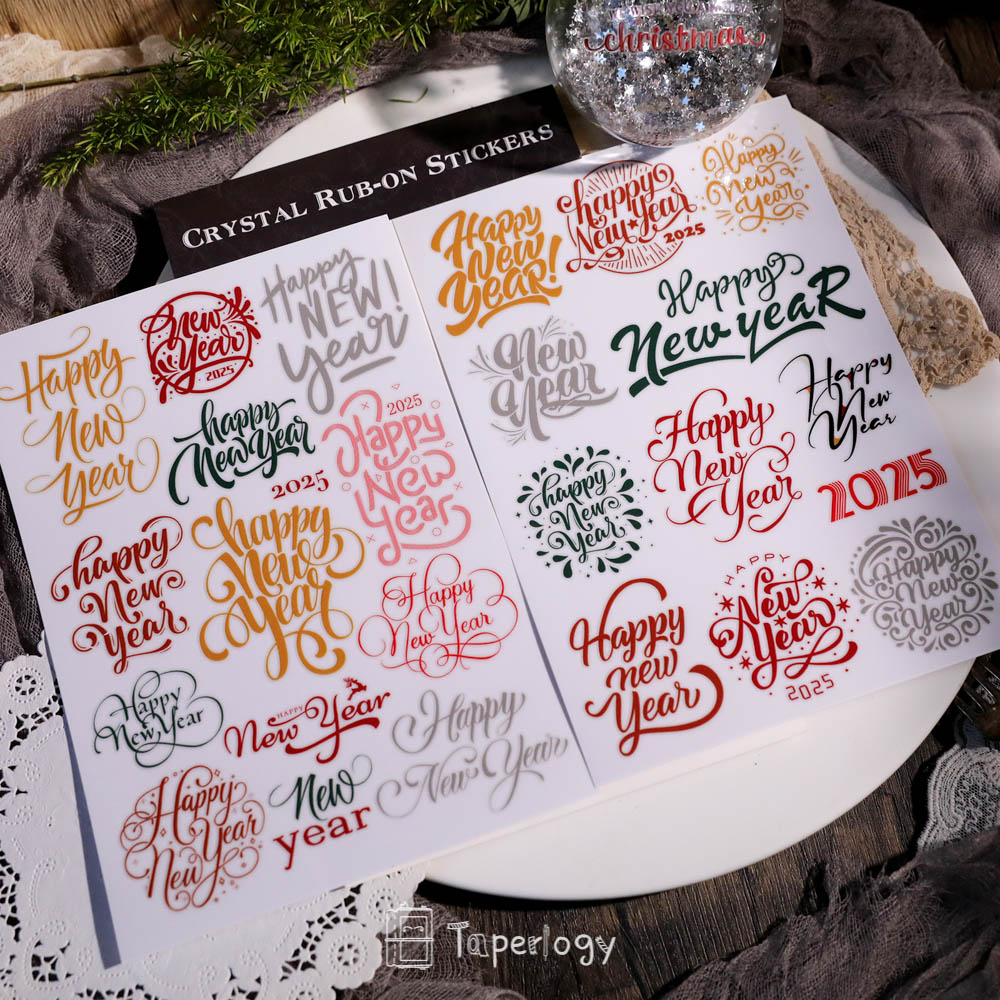 christmas
CRYSTAL RUB-ON STICKERS
Happy
New
Year
New
Year
2025
Happy
NEW!
Year
happy
New Year
2025
2025
Happy
New
Year
happy
New
Year
happy
New
Year
Happy
New Year
Happy
New Year
HAPPY
New Year
Happy
New Year
Happy
Year
New
New
year
Happy
New
YEAR!
happy
New Year
2025
Happy
New
Year
New
Year
Happy
New yeaR
Happy
New
Year
happy
New
Year
Happy
New
Year
2025
Happy
new
Year
HAPPY
New
Year
2025
Happy
New
Year
Taperlogy